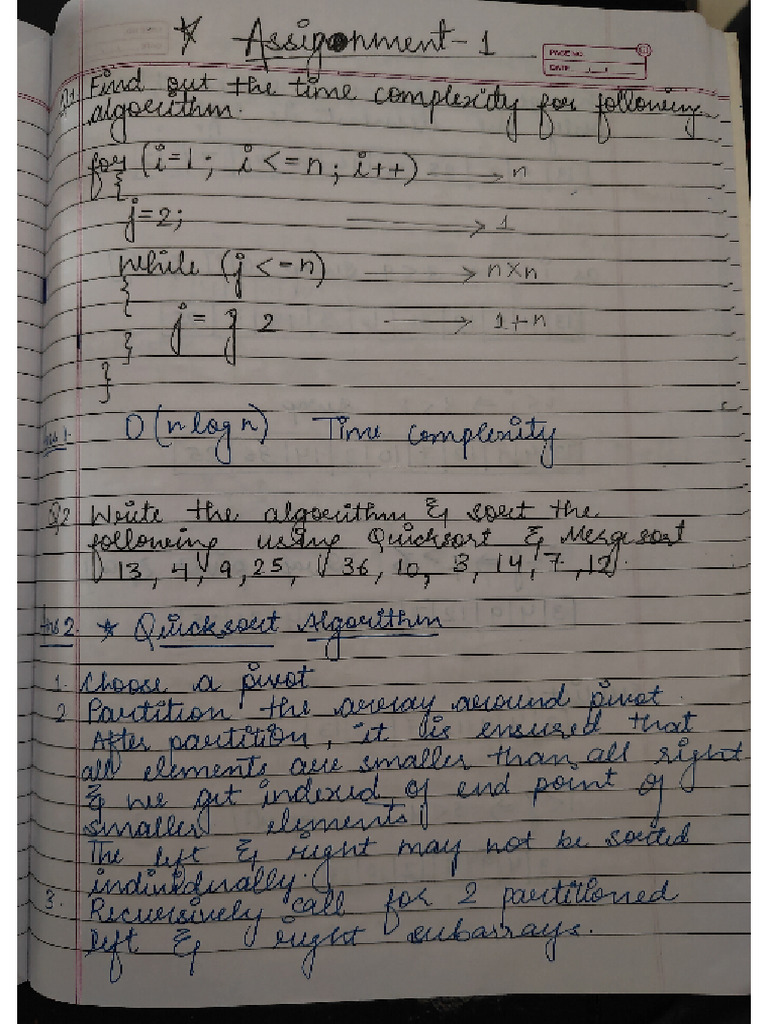 ☆ Assignment - 1
PAGE NO.
DATE
Q1 Find out the time complexity for following
algorithm.
for (i=1; i<=n; i++) → n
{
j=2; → 1
while (j<-n) → n×n
{
j = j 2 → 1+n
}
}
Ans 1. O(n log n) Time complexity
Q2 Write the algorithm & sort the
following using Quicksort & Mergesort
13, 4, 9, 25, 36, 10, 3, 14, 7, 12.
Ans 2. ☆ Quicksort Algorithm
1. Choose a pivot
2 Partition the array around pivot.
After partition, it is ensured that
all elements are smaller than all right
& we get indexed of end point of
smaller elements
The left & right may not be sorted
individually.
3. Recursively call for 2 partitioned
left & right subarrays.